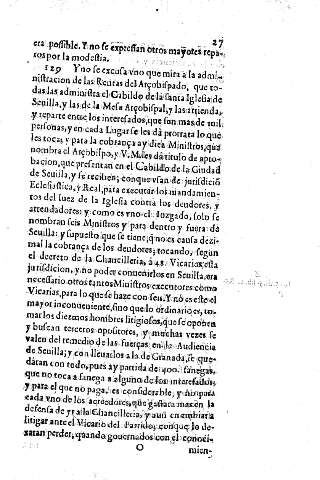 27
era possible. Y no se expressan otros mayores repa-
ros por la modestia.
129 Y no se escusa vno que mira a la admi-
nistracion de las Rentas del Arçobispado, que to-
das las administra el Cabildo de la santa Iglesia de
Seuilla, y las de la Mesa Arçobispal, y las arrienda,
y reparte entre los interesados, que son mas de mil
personas, y en cada Lugar se les dà prorrata lo que
les toca; y para la cobrança ay diez Ministros, que
nombra el Arçobispo, y V. Mag. dà titulo de apro-
bacion, que presentan en el Cabildo de la Ciudad
de Seuilla, y se reciben; con que vsan de jurisdició
Eclesiastica, y Real, para executar los mandamien-
tos del Iuez de la Iglesia contra los deudores, y
arrendadores: y como es vno el Iuzgado, solo se
nombran seis Ministros para dentro y fuera de
Seuilla: y supuesto que se tiene, q no es causa dezi-
mal la cobrança de los deudores; tocando, segun
el decreto de la Chancilleria, à 48. Vicarios esta
jurisdicion, y no poder conuenirlos en Seuilla, era
necessario otros tantos Ministros executores como
Vicarias, para lo que se haze con seis. Y no es este el
mayor inconueniente, sino que lo ordinario es, to-
mar los diezmos hombres litigiosos, que se oponen
y buscan terceros opositores, y muchas vezes se
valen del remedio de las fuerças en la Audiencia
de Seuilla; y con lleuarlos a la de Granada, se que-
daràn con todo, pues ay partida de 100. fanegas,
que no toca a fanega a alguno de los interesados,
y para el que no paga, es considerable, y ninguno
cada vno de los acreedores, que gastara mas en la
defensa de yr a la Chancilleria; y aun en embiar a
litigar ante el Vicario del Partido; con que lo de-
xaran perder, quando gouernados con el conoci-
O mien-